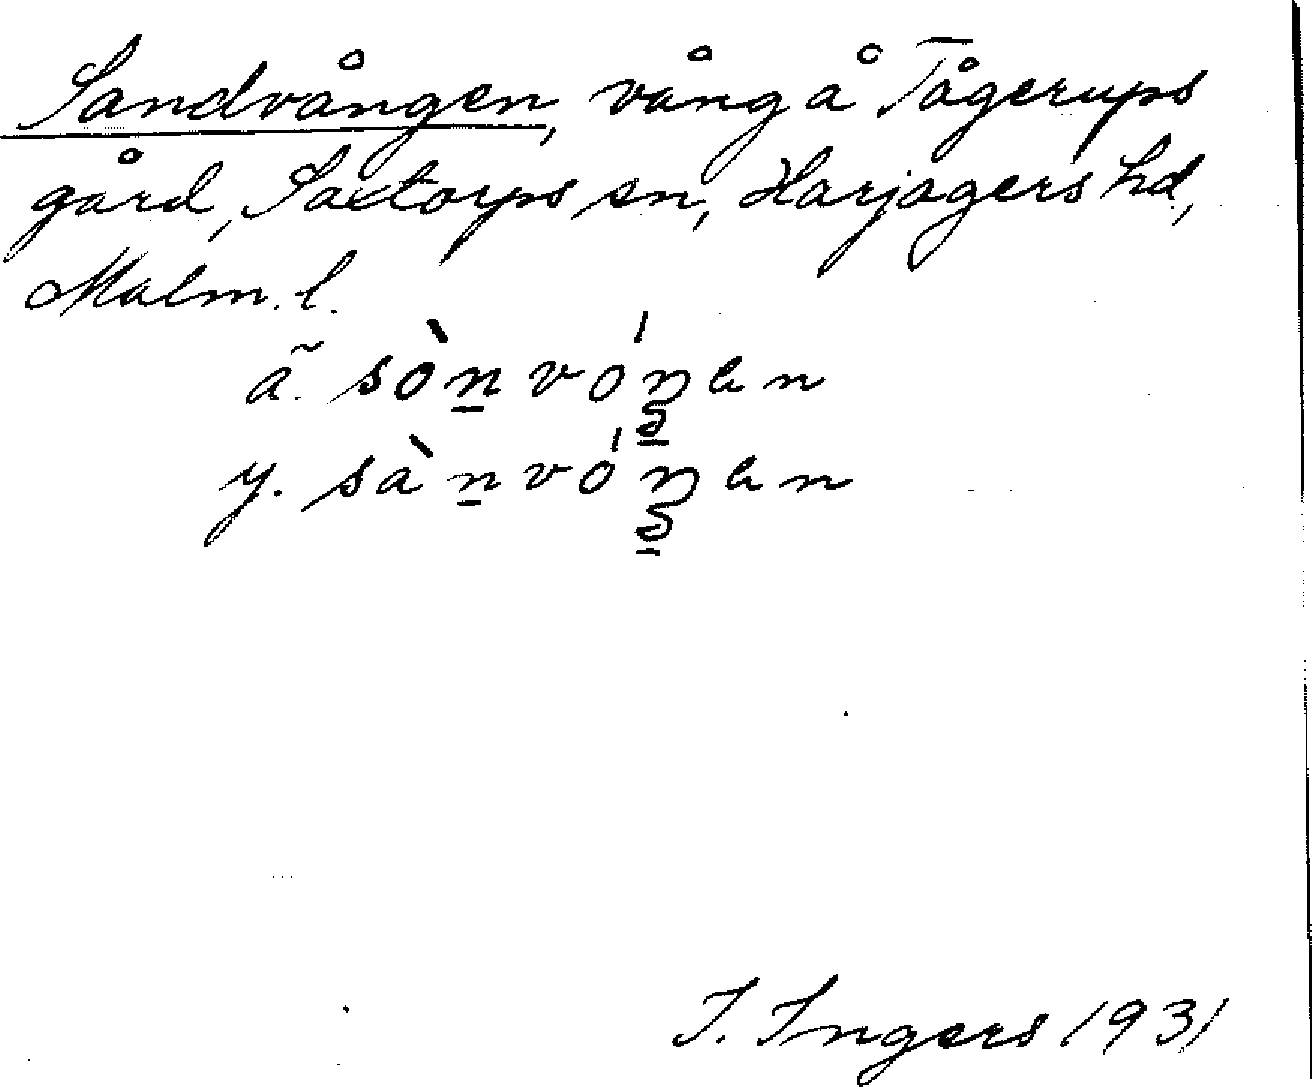 Sandvången, vång å Tågerups
gård, Saxtorps sn, Harjagers hd,
Malm. l.
ã. sòn̲ vóŋen
y. sàn̲ vóŋen
I. Ingers 1931